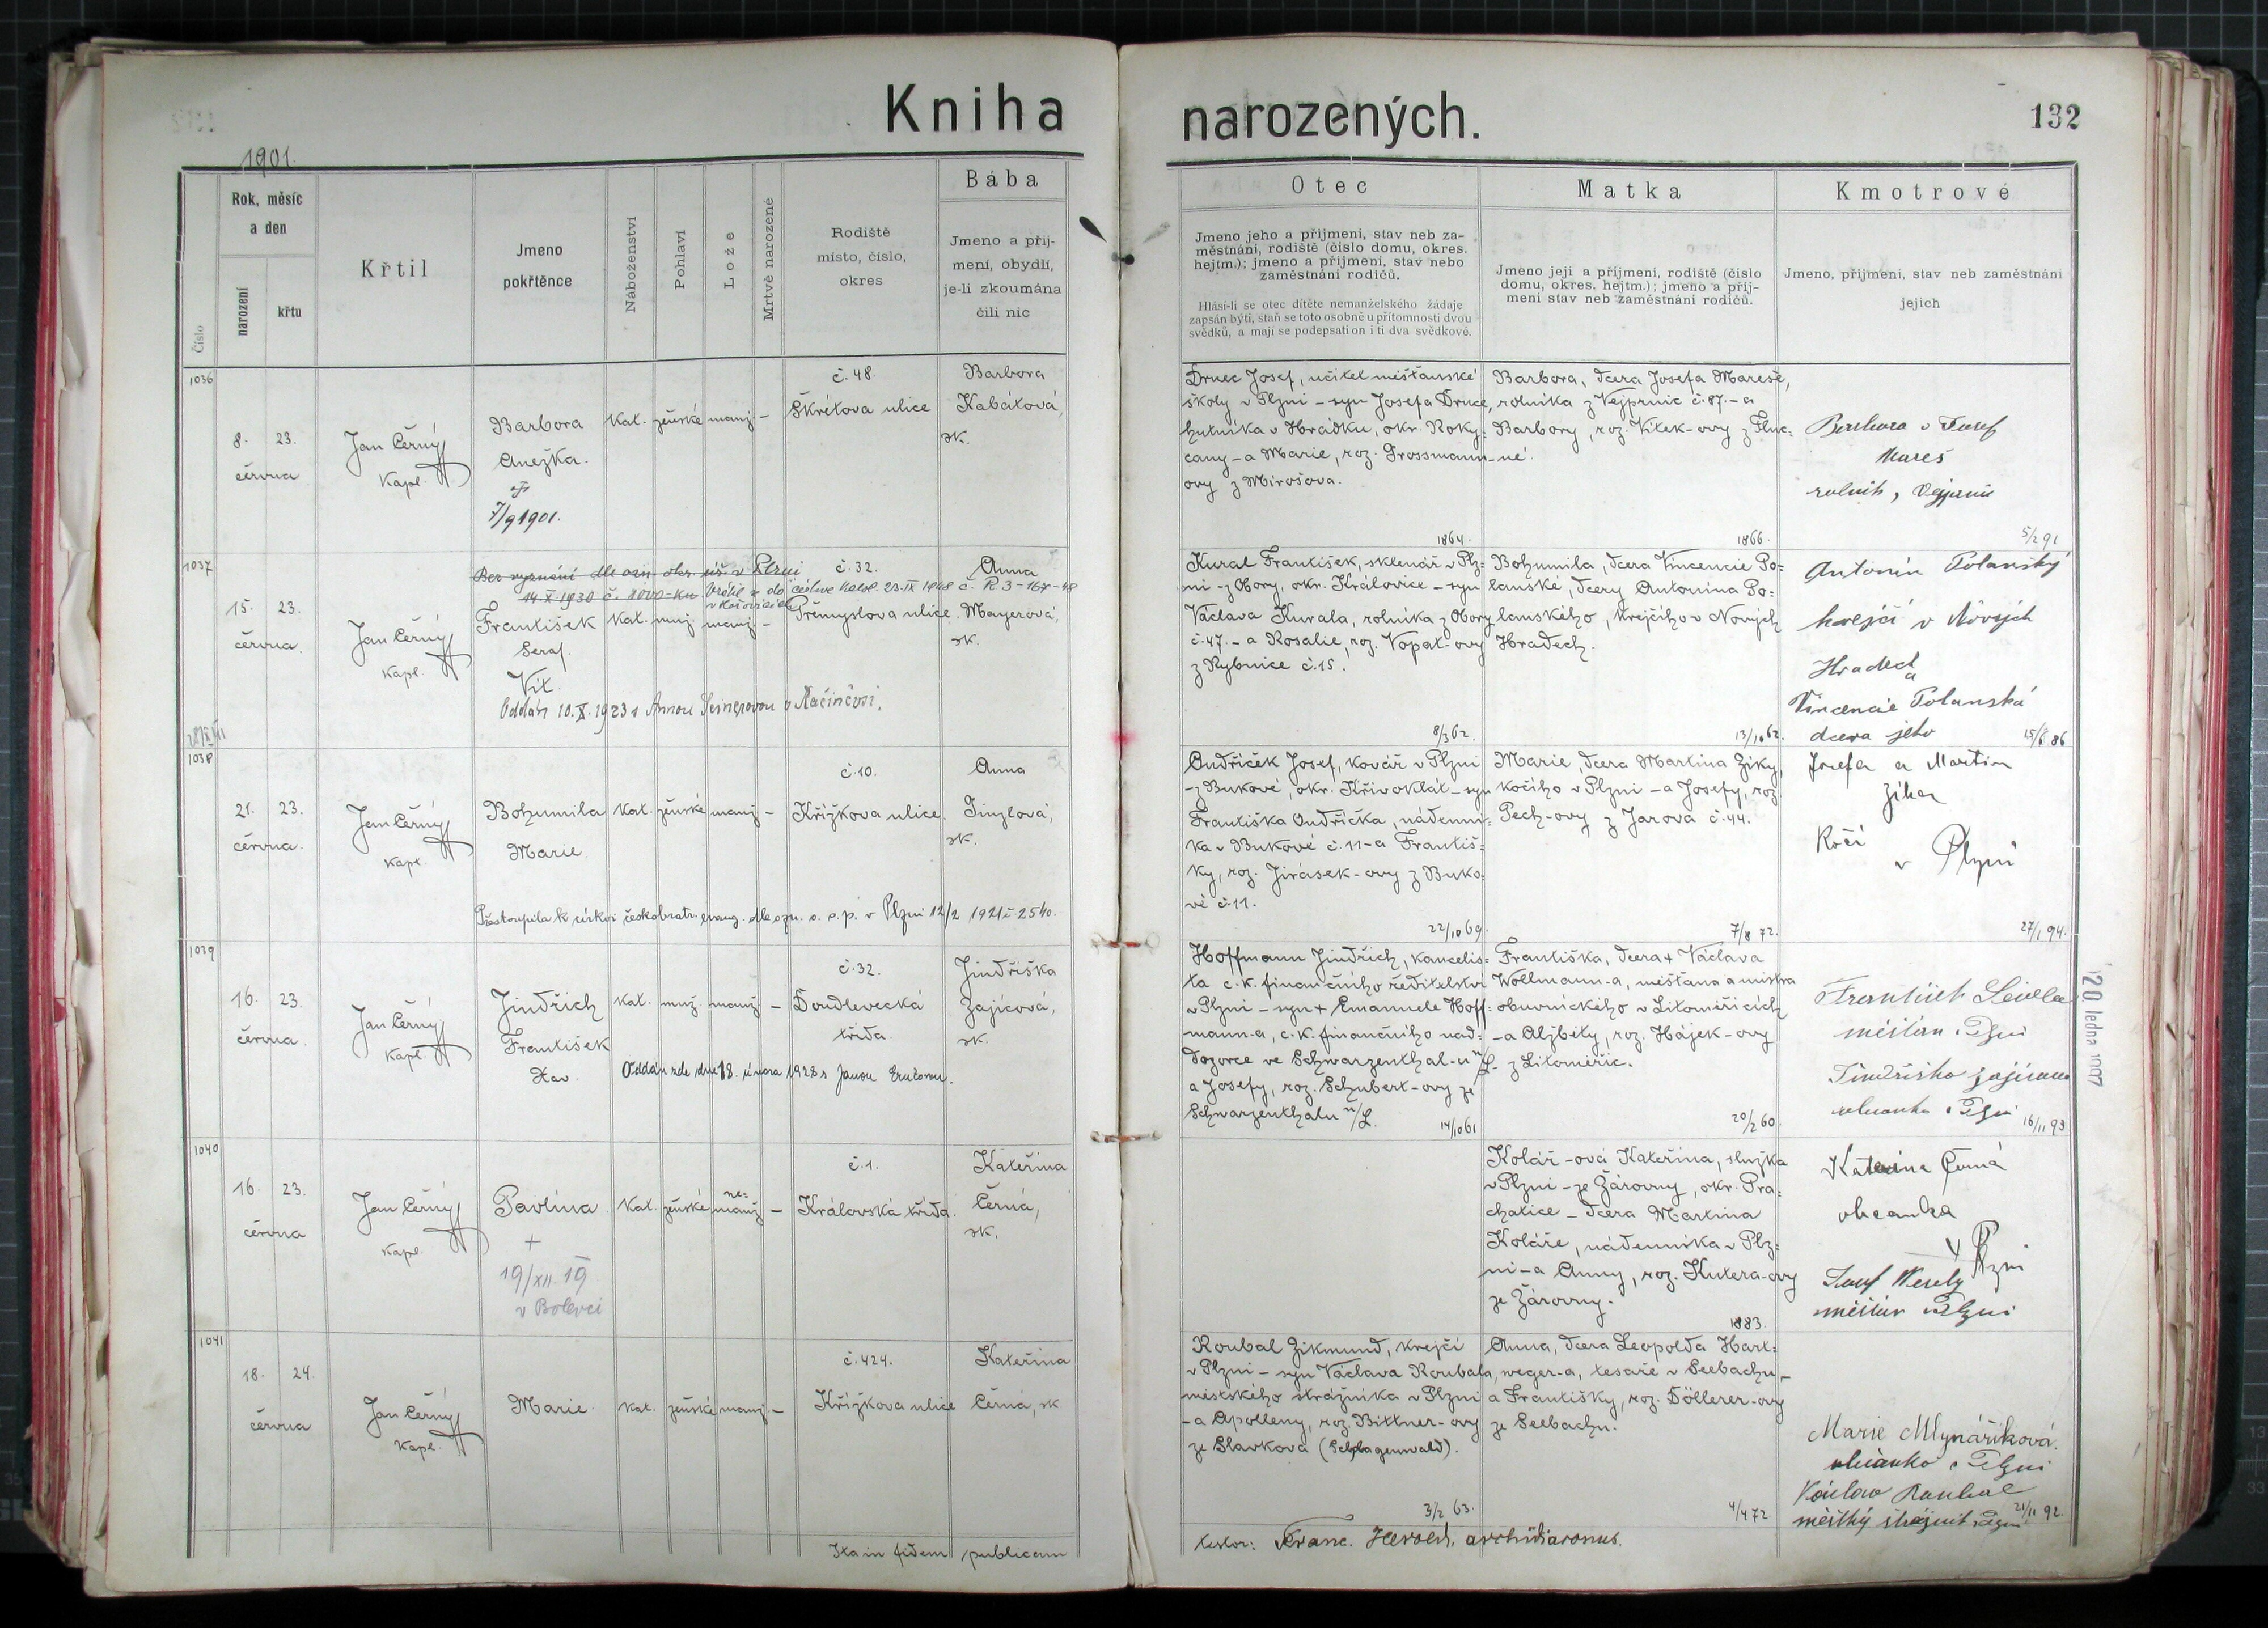 Kniha narozených.
132
1901.
Číslo
Rok, měsíc
a den
narození
křtu
Křtil
Jmeno
pokřtěnce
Náboženství
Pohlaví
Lože
Mrtvě narozené
Rodiště
místo, číslo,
okres
Bába
Jmeno a přij-
mení, obydlí,
je-li zkoumána
čili nic
Otec
Jmeno jeho a přijmení, stav neb za-
městnání, rodiště (číslo domu, okres.
hejtm.); jmeno a přijmení, stav nebo
zaměstnání rodičů.
Hlásí-li se otec dítěte nemanželského žádaje
zapsán býti, staň se toto osobně u přítomnosti dvou
svědků, a mají se podepsati on i ti dva svědkové.
Matka
Jmeno její a přijmení, rodiště (číslo
domu, okres. hejtm.); jmeno a přij-
mení stav neb zaměstnání rodičů.
Kmotrové
Jmeno, přijmení, stav neb zaměstnání
jejich
1036
8. 23.
června
Jan Černý
kapl.
Barbora
Anežka.
7/9 1901.
kat. ženské manž. –
č. 48.
Škrétova ulice
Barbora
Kabátová,
zk.
Drnec Josef, učitel měšťanské
školy v Plzni – syn Josefa Drnce,
hutníka v Hrádku, okr. Roky-
cany – a Marie, roz. Grossmann-
ovy z Mirošova.
1864.
Barbora, dcera Josefa Mareše,
rolníka z Vejprnic č. 87. – a
Barbory, roz. Vítek-ovy z
né.
1866.
Barbora a Josef
Mareš
rolník, Vejprnic
5/2 91
1037
Bez vyznání dle ozn. okr. úř. v Plzni
14.X 1930 č.
15. 23.
června.
Jan Černý
kapl.
František
Seraf.
Vít.
kat. muž. manž. –
č. 32.
Přemyslova ulice.
Anna
Mayerová,
zk.
Oddán 10.X.1923 s Annou
Kural František, sklenář v Plz-
ni – z Obory, okr. Kralovice – syn
Václava Kurala, rolníka z Obory
č. 47. – a Rosalie, roz. Vopat-ovy
z Rybnice č. 15.
8/3 62.
Bohumila, dcera Vincencie Po-
lanské, dcery Antonína Po-
lanského, krejčího v Nových
Hradech.
13/10 62.
Antonín Polanský
krejčí v Nových
Hradech
a
Vincencie Polanská
dcera jeho
15/8 86
1038
21. 23.
června.
Jan Černý
kapl.
Bohumila
Marie
kat. ženské manž. –
č. 10.
Křížkova ulice.
Anna
Tinzlová,
zk.
Přestoupila k církvi českobratr. evang. dle ozn. o. s. p. v Plzni 12/2 1921 č. 2540.
Ondříček Josef, kovář v Plzni
– z Bukové, okr. Křivoklát – syn
Františka Ondříčka, nádenní-
ka v Bukové č. 11 – a Františ-
ky, roz. Jirásek-ovy z Buko-
vé č. 11.
22/10 69.
Marie, dcera Martina Ziky,
kočího v Plzni – a Josefy, roz.
Pech-ovy z Jarova č. 44.
7/8 72.
Josefa a Martin
Zika
Kočí
v Plzni
27/1 94.
1039
16. 23.
června.
Jan Černý
kapl.
Jindřich
František
Xav.
kat. muž. manž. –
č. 32.
Doudlevecká
třída.
Jindřiška
Zajícová,
zk.
Oddán zde dne 18. února 1928 s Janou
Hoffmann Jindřich, kancelis-
ta c. k. finančního ředitelství
v Plzni – syn + Emanuele Hoff-
mann-a, c. k. finančního nad-
dozorce ve Schwarzenthal-u n/L.
a Josefy, roz. Schubert-ovy ze
Schwarzenthalu n/L.
14/10 61
Františka, dcera + Václava
Wollmann-a, měšťana a mistra
obuvnického v Litoměřicích
– a Alžběty, roz. Hájek-ovy
z Litoměřic.
20/2 60.
František
měšťan v Plzni
Jindřiška Zajícová
občanka v Plzni
16/11 93
1040
16. 23.
června
Jan Černý
kapl.
Pavlína
+
19/XII 19
v Bolevci
kat. ženské ne-
manž. –
č. 1.
Královská třída.
Kateřina
Černá,
zk.
Kolář-ová Kateřina, služka
v Plzni – ze Žárovny, okr. Pra-
chatice – dcera Martina
Koláře, nádenníka v Plz-
ni – a Anny, roz. Kutera-ovy
ze Žárovny.
1883.
Kateřina Černá
občanka
v Plzni
Josef Veselý
měšťan v Plzni
1041
18. 24.
června
Jan Černý
kapl.
Marie
kat. ženské manž. –
č. 424.
Křížkova ulice
Kateřina
Černá, zk
Roubal Zikmund, krejčí
v Plzni – syn Václava Roubala,
městského strážníka v Plzni
– a Apolleny, roz. Bittner-ovy
ze Slavkova (Schlagenwald).
3/2 63.
Anna, dcera Leopolda Hart-
weger-a, tesaře v Seebachu –
a Františky, roz. Döllerer-ovy
ze Seebachu.
4/4 72
Marie Mlynáříková.
občanka v Plzni
Václav Roubal
městský strážník v Plzni
21/11 92.
20. ledna
Ita in fidem publicam
testor: Franc. Herold, archidiaconus.